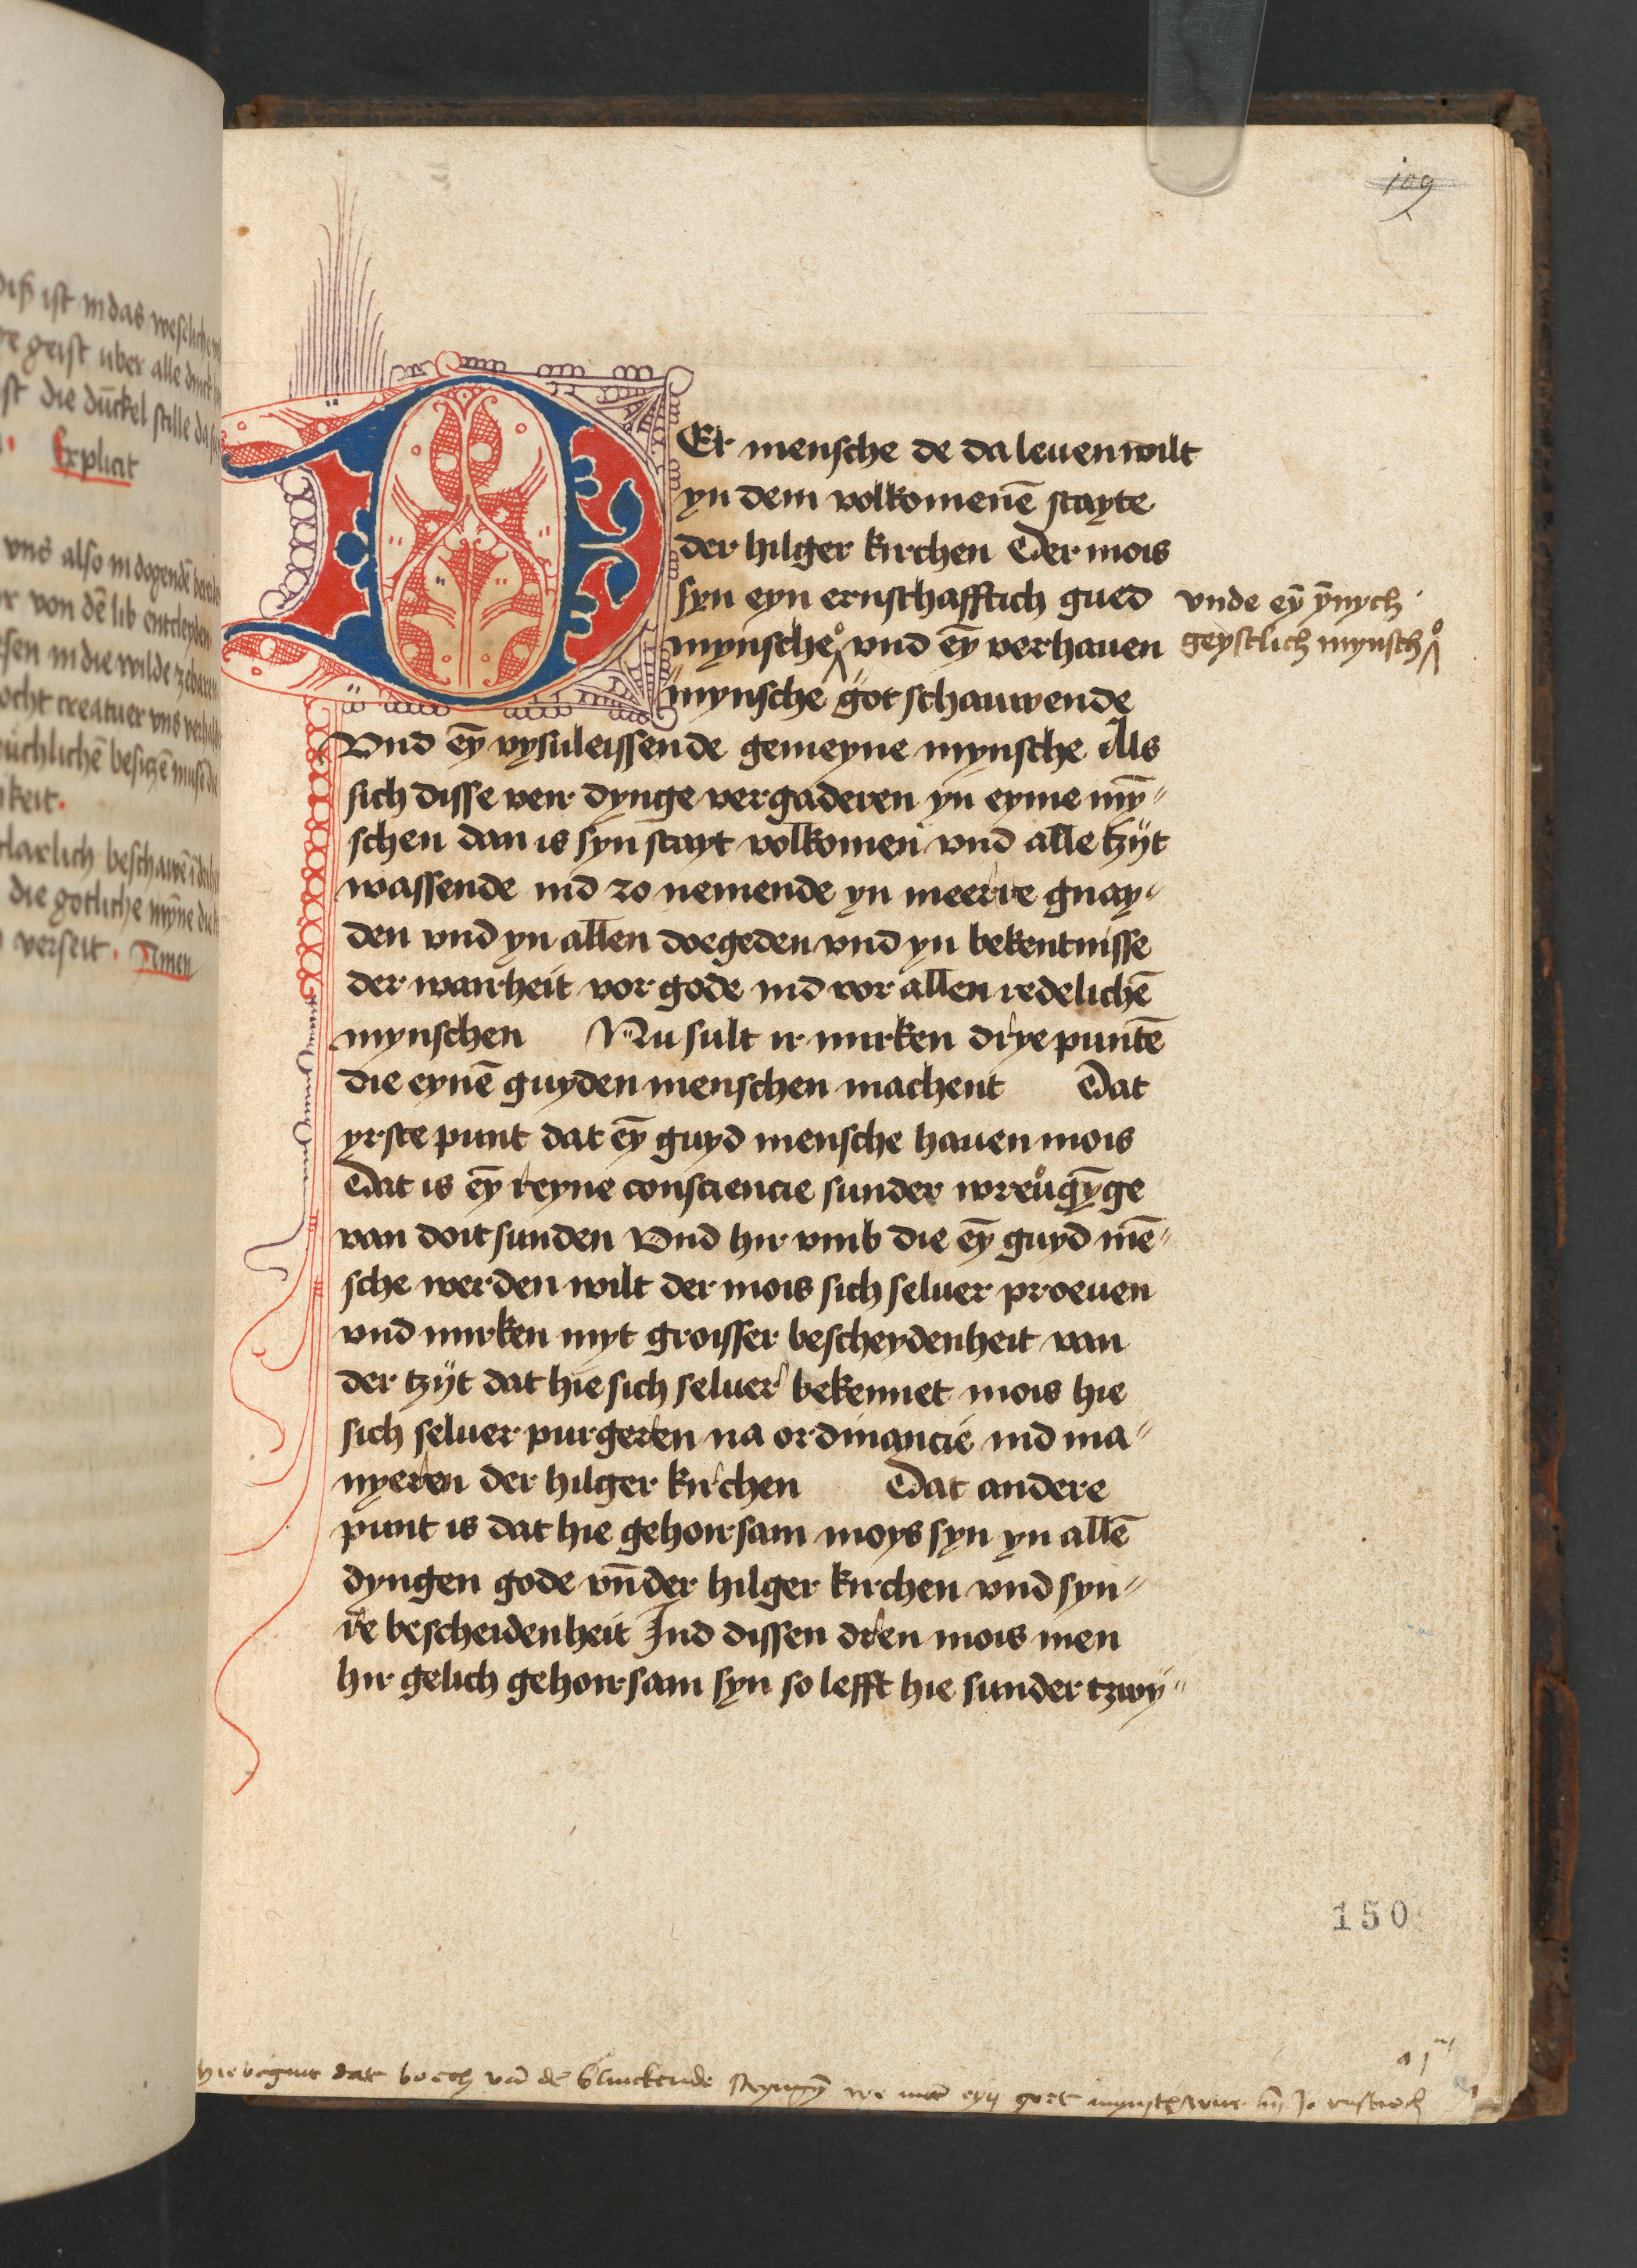 diß ist in das weseliche
geist uber alle dinck
ist die dūckel stille da
Explicit
vns also in dogendē
von dē lib entcleyden
in die wilde
creatuer vns
besitzē muse die
keit.
clarlich beschawē
die gotliche mȳne die
verseit. Amen
109
DEr mensche de da leuen wilt
yn dem volkomenē stayte
der hilger kirchen Der mois
syn eyn ernschafftich gued
vnde eȳ ȳnych
mynsche vnd eȳ verhauen
geystlich mynsch
mynsche got schauwende
Vnd eȳ vysuleissende gemeyne mynsche Als
sich disse veir dynge vergaderen yn eyme mȳ〃
schen dan is syn stayt volkomen vnd alle tzÿt
wassende ind zo nemende yn meerre gnay〃
den vnd yn allen doegeden vnd yn bekentnisse
der wairheit vor gode ind vor allen redelichē
mynschen Nu sult ir mirken drye puntē
die eynē guyden menschen machent Dat
yrste punt dat eȳ guyd mensche hauen mois
Dat is eȳ reyne consciencie sunder wreugȳge
van doit sunden Vnd hir vmb die eȳ guyd mē〃
sche werden wilt der mois sich seluer proeuen
vnd mirken myt groisser bescheydenheit van
der tzÿt dat hie sich seluer bekennet mois hie
sich seluer purgeren na ordinancie ind ma〃
nyeren der hilger kirchen Dat andere
punt is dat hie gehoirsam moys syn yn allē
dyngen gode vn̄ der hilger kirchen vnd syn〃
re bescheidenheit Ind dissen dren mois men
hir gelich gehoirsam syn so lefft hie sunder tzwy〃
150
hie begint dat boech vā dē blinckende